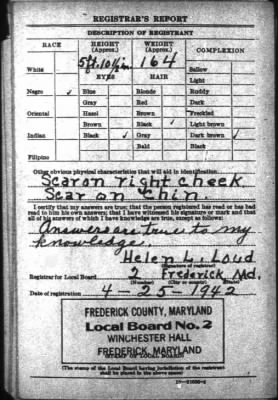 REGISTRAR'S REPORT
DESCRIPTION OF REGISTRANT
RACE HEIGHT (Approx.) WEIGHT (Approx.) COMPLEXION
5 ft. 10 1/2 in 164
White Sallow
EYES HAIR Light
Negro ✓ Blue Blonde Ruddy
Gray Red Dark
Oriental Hazel Brown Freckled
Brown Black ✓ Light brown
Indian Black ✓ Gray Dark brown ✓
Bald Black
Filipino
Other obvious physical characteristics that will aid in identification
Scar on right cheek
Scar on chin
I certify that my answers are true; that the person registered has read or has had
read to him his own answers; that I have witnessed his signature or mark and that
all of his answers of which I have knowledge are true, except as follows:
Answers are true to my
knowledge.
Helen L. Loud
(Signature of registrar)
Registrar for Local Board 2 Frederick Md.
(Number) (City or county) (State)
Date of registration 4-25-1942
FREDERICK COUNTY, MARYLAND
Local Board No. 2
WINCHESTER HALL
FREDERICK, MARYLAND
(STAMP OF LOCAL BOARD)
(The stamp of the Local Board having jurisdiction of the registrant
shall be placed in the above space)